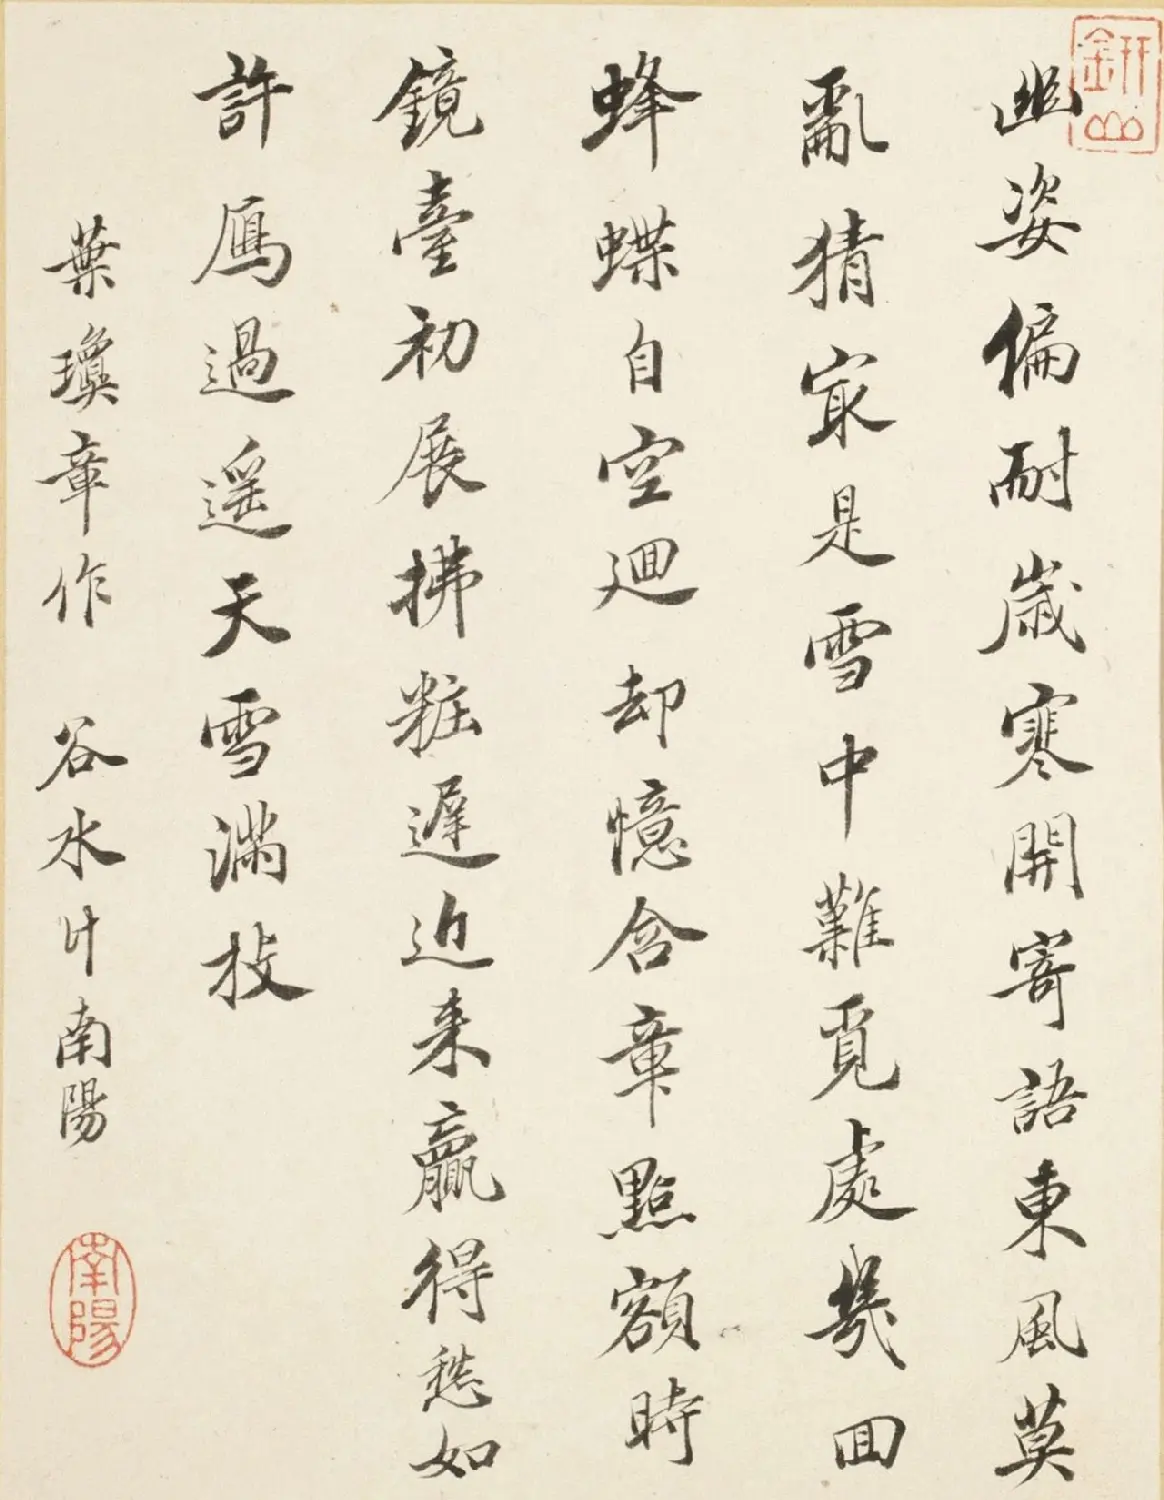 幽姿偏耐歲寒開寄語東風莫
亂猜冣是雪中難覓處幾回
蜂蝶自空迴却憶含章點額時
鏡臺初展拂粧遲近来贏得愁如
許鴈過遥天雪滿枝
葉瓊章作 谷水叶南陽
南陽